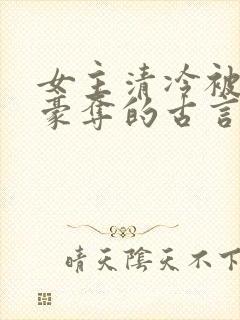 女主清冷被
豪夺的古言
晴天陰天不下